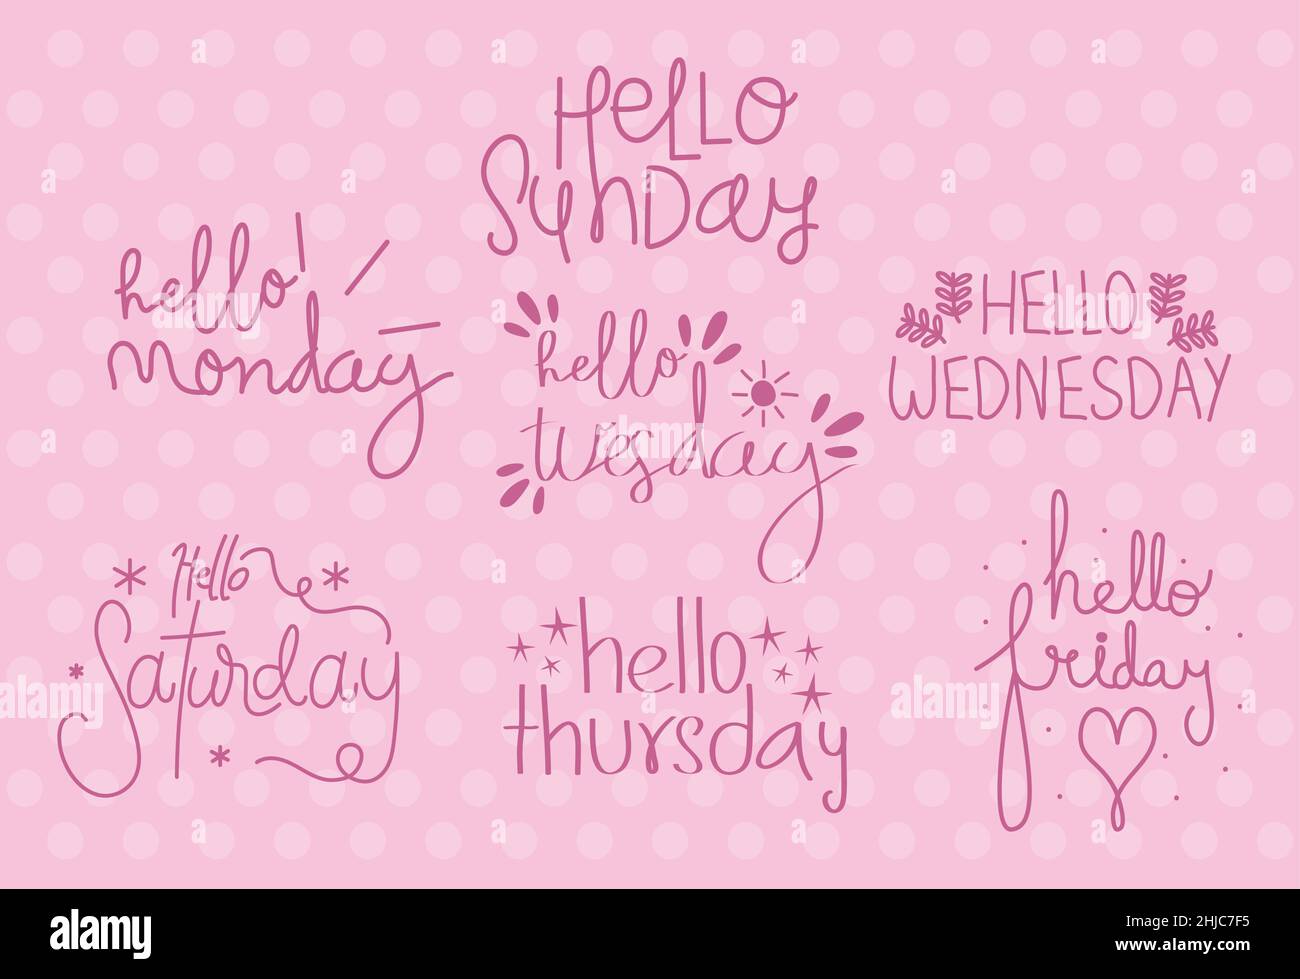 HeLLO
SunDay
hello!
monday
hello
tuesday
HELLO
WEDNESDAY
Hello
Saturday
hello
thursday
hello
friday
alamy
Image ID: 2HJC7F5
www.alamy.com